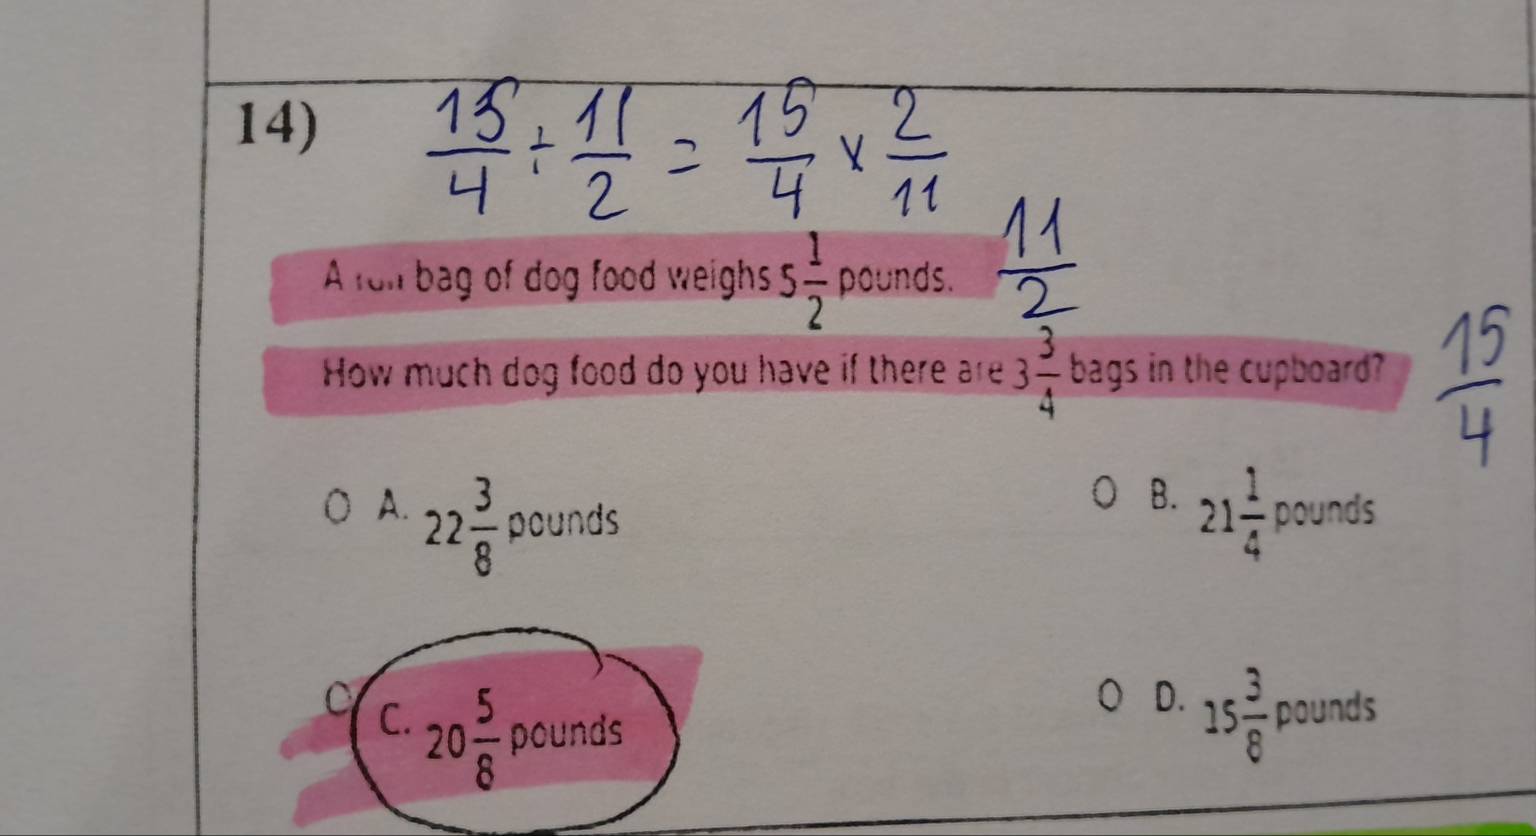 14) 15/4 ÷ 11/2 = 15/4 x 2/11
A bag of dog food weighs 5 1/2 pounds. 11/2
How much dog food do you have if there are 3 3/4 bags in the cupboard? 15/4
O A. 22 3/8 pounds
O B. 21 1/4 pounds
O C. 20 5/8 pounds
O D. 15 3/8 pounds